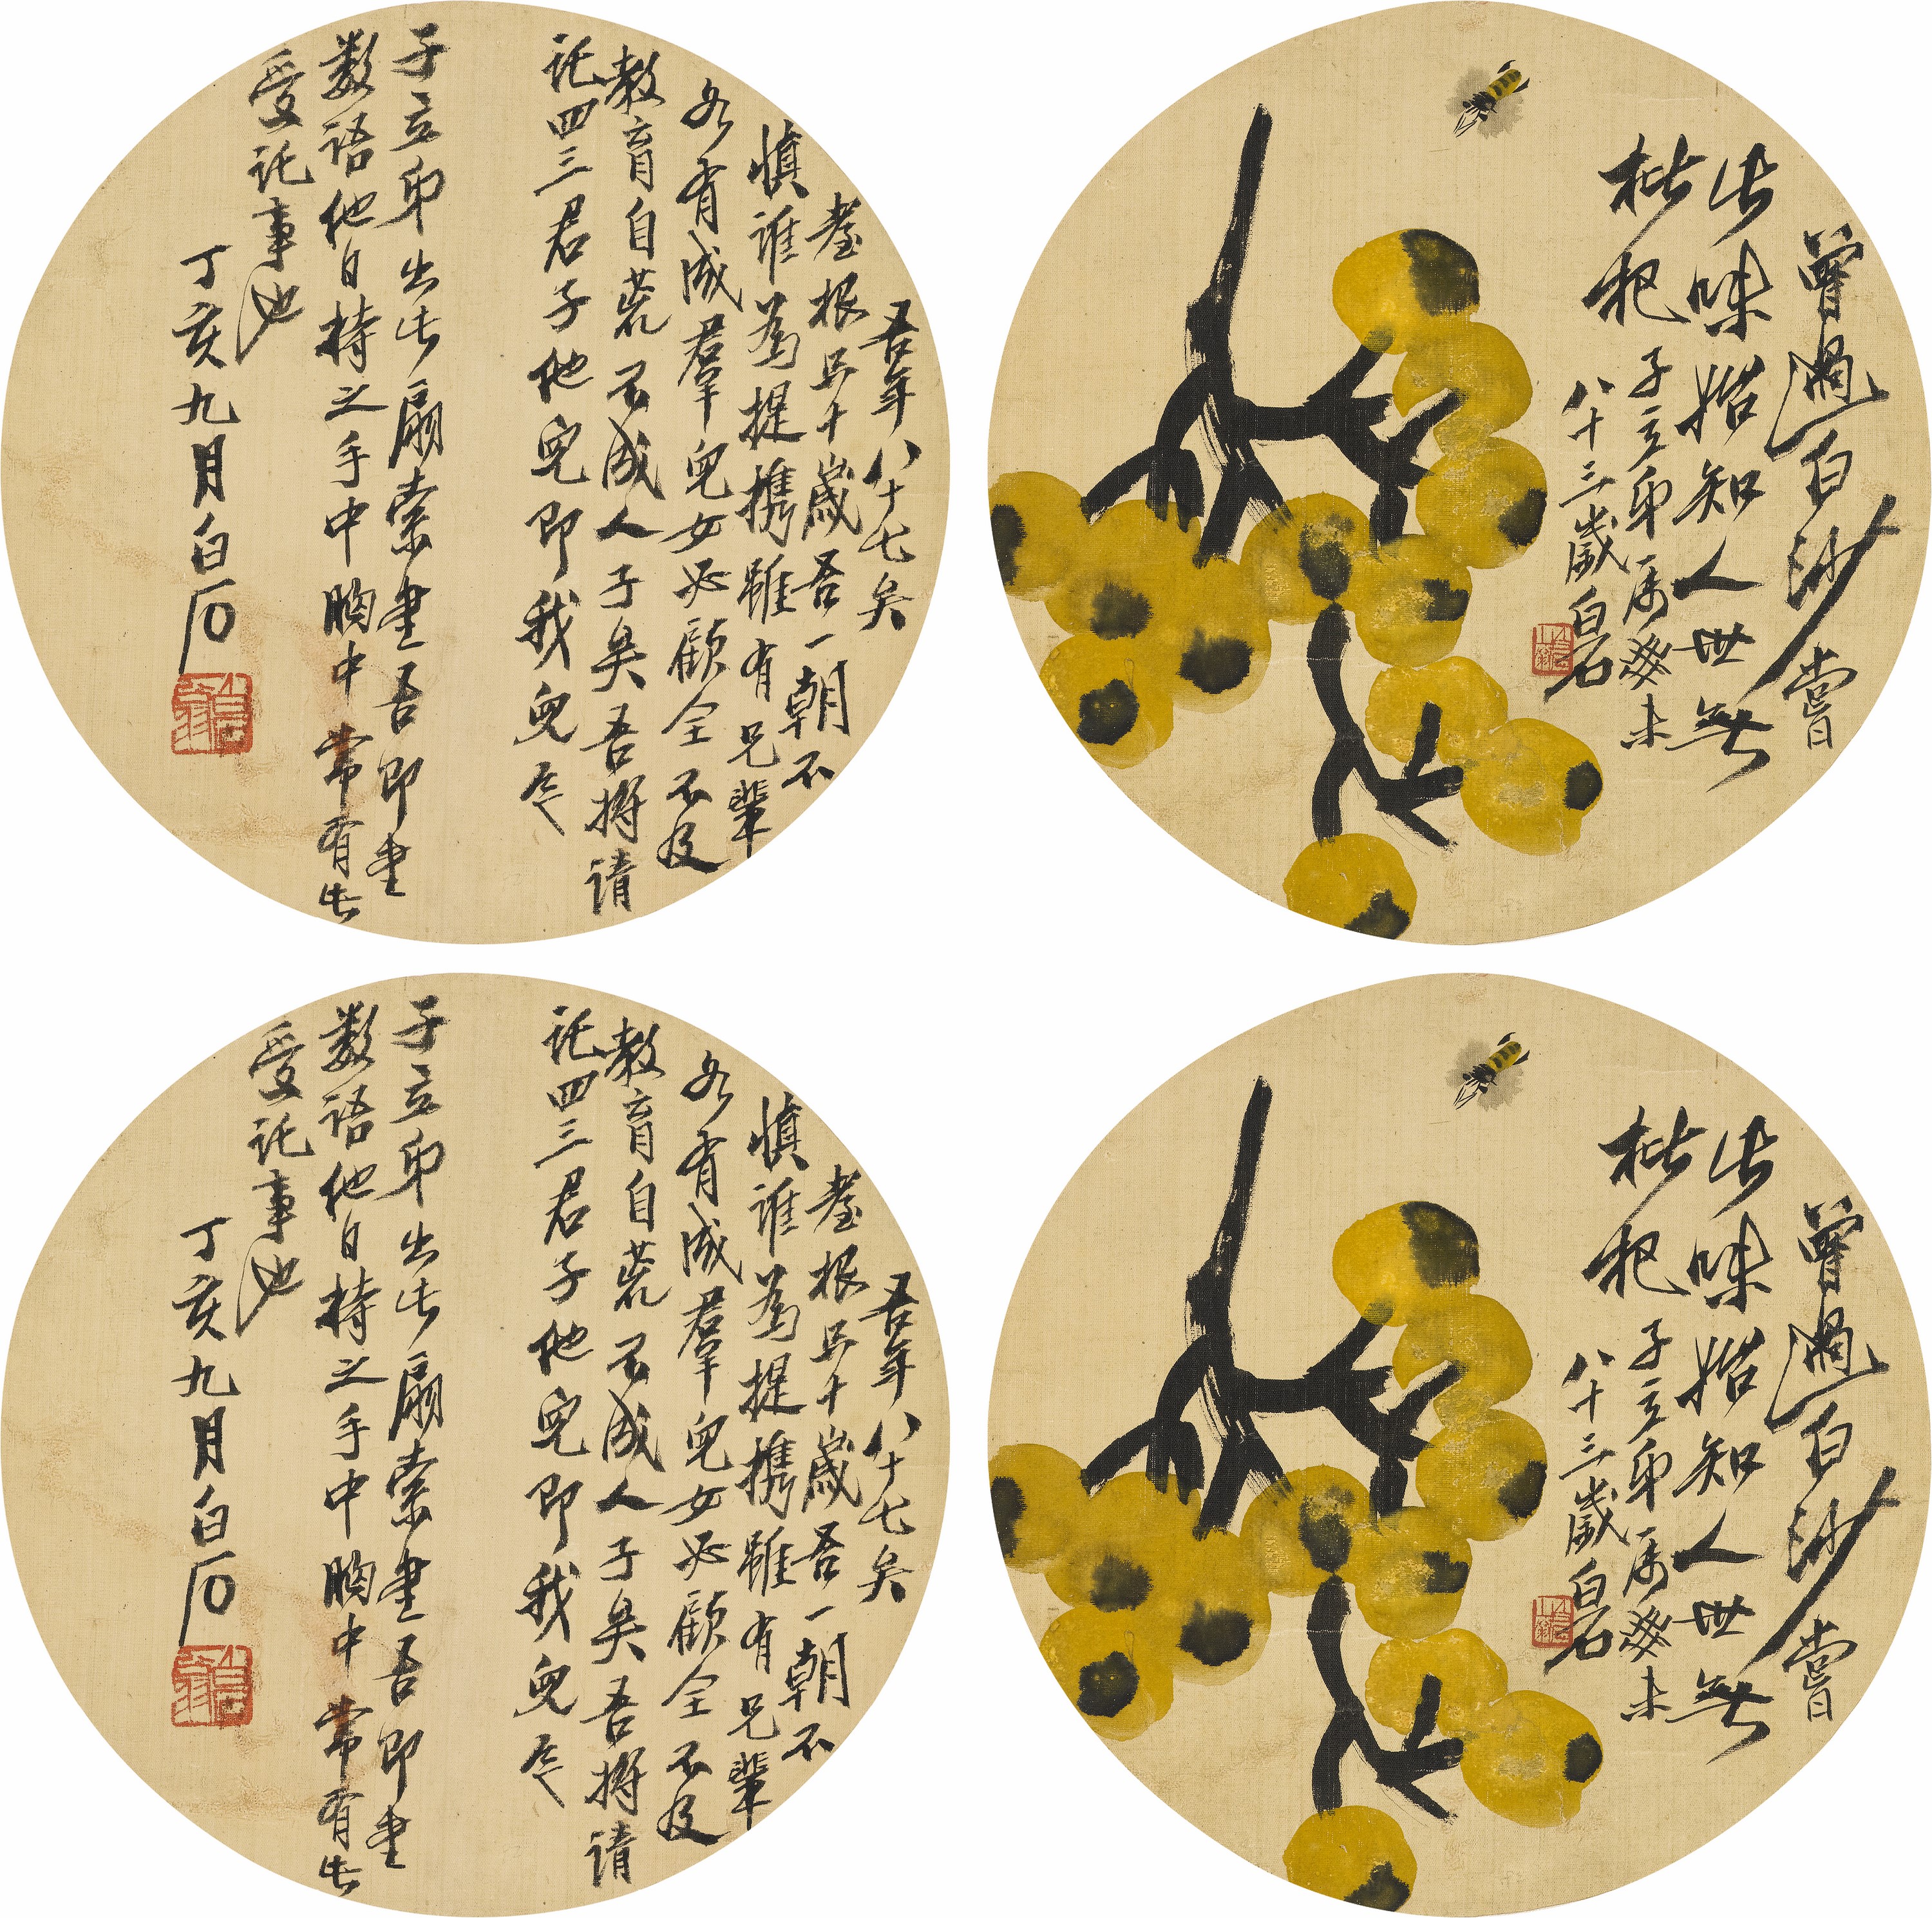 吾年八十七矣
耋根只十歲吾一朝不
慎誰為提攜雖有兄輩
各有成羣兒女必顧全不及
教育自荒不成人子矣吾將請
託四三君子他兒即我兒
子立弟出此扇索書吾即書
數語他日持之手中胸中常有此
受託事也
丁亥九月白石
曾過白沙嘗
此味始知人世無
枇杷
子立弟屬癸未
八十三歲白石
吾年八十七矣
耋根只十歲吾一朝不
慎誰為提攜雖有兄輩
各有成羣兒女必顧全不及
教育自荒不成人子矣吾將請
託四三君子他兒即我兒
子立弟出此扇索書吾即書
數語他日持之手中胸中常有此
受託事也
丁亥九月白石
曾過白沙嘗
此味始知人世無
枇杷
子立弟屬癸未
八十三歲白石